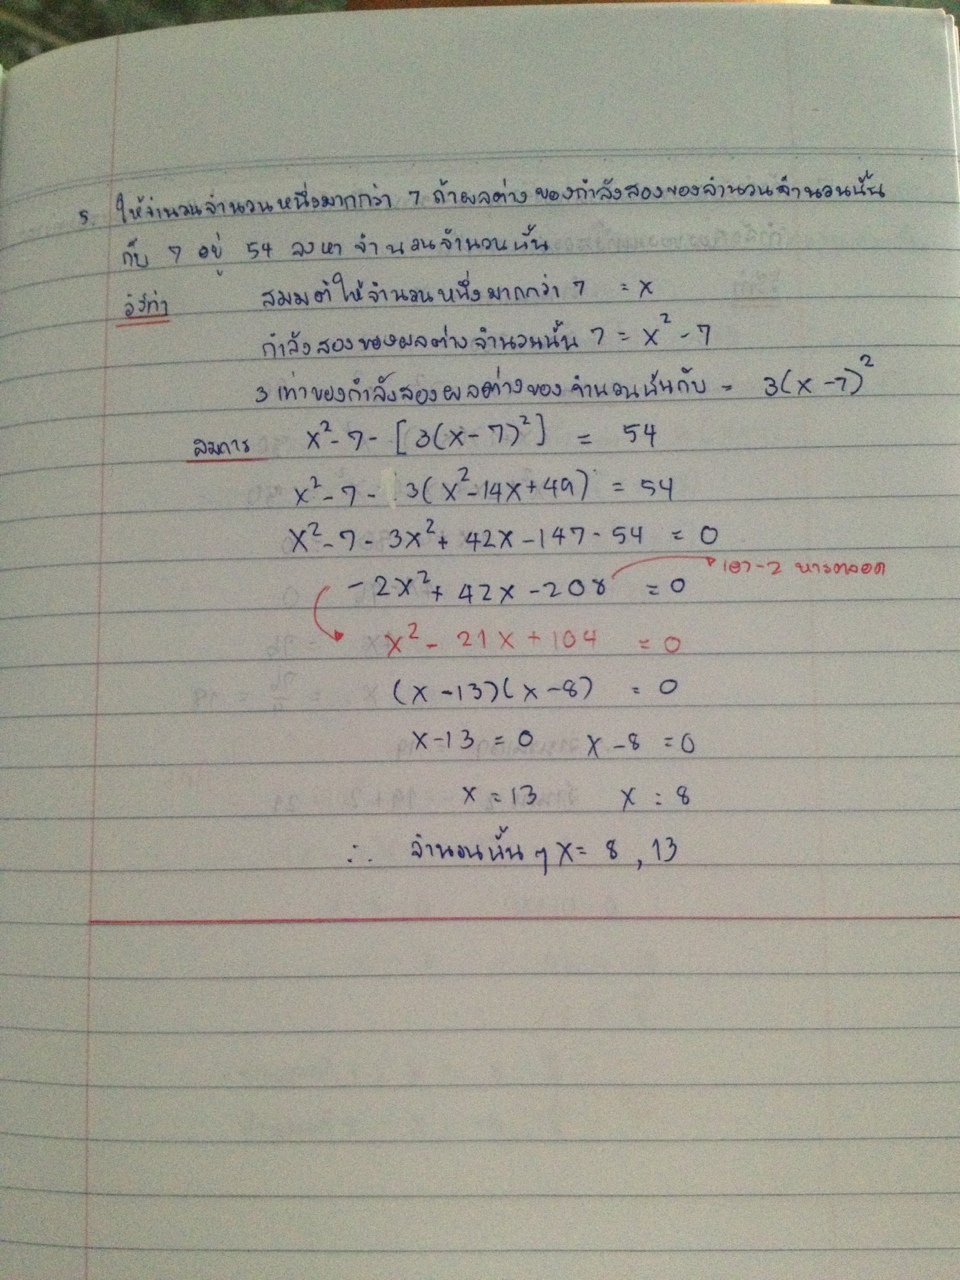 5. ให้จำนวนจำนวนหนึ่งมากกว่า 7 ถ้าผลต่างของกำลังสองของจำนวนจำนวนนั้น
กับ 7 อยู่ 54 จงหาจำนวนจำนวนนั้น
วิธีทำ สมมติให้จำนวนหนึ่งมากกว่า 7 = x
กำลังสองของผลต่างจำนวนนั้น 7 = x² - 7
3 เท่าของกำลังสองผลต่างของจำนวนนั้นกับ = 3(x - 7)²
สมการ x² - 7 - [3(x - 7)²] = 54
x² - 7 - 3(x² - 14x + 49) = 54
x² - 7 - 3x² + 42x - 147 - 54 = 0
- 2x² + 42x - 208 = 0 เอา -2 หารตลอด
x² - 21x + 104 = 0
(x - 13)(x - 8) = 0
x - 13 = 0 x - 8 = 0
x = 13 x = 8
∴ จำนวนนั้นๆ x = 8 , 13